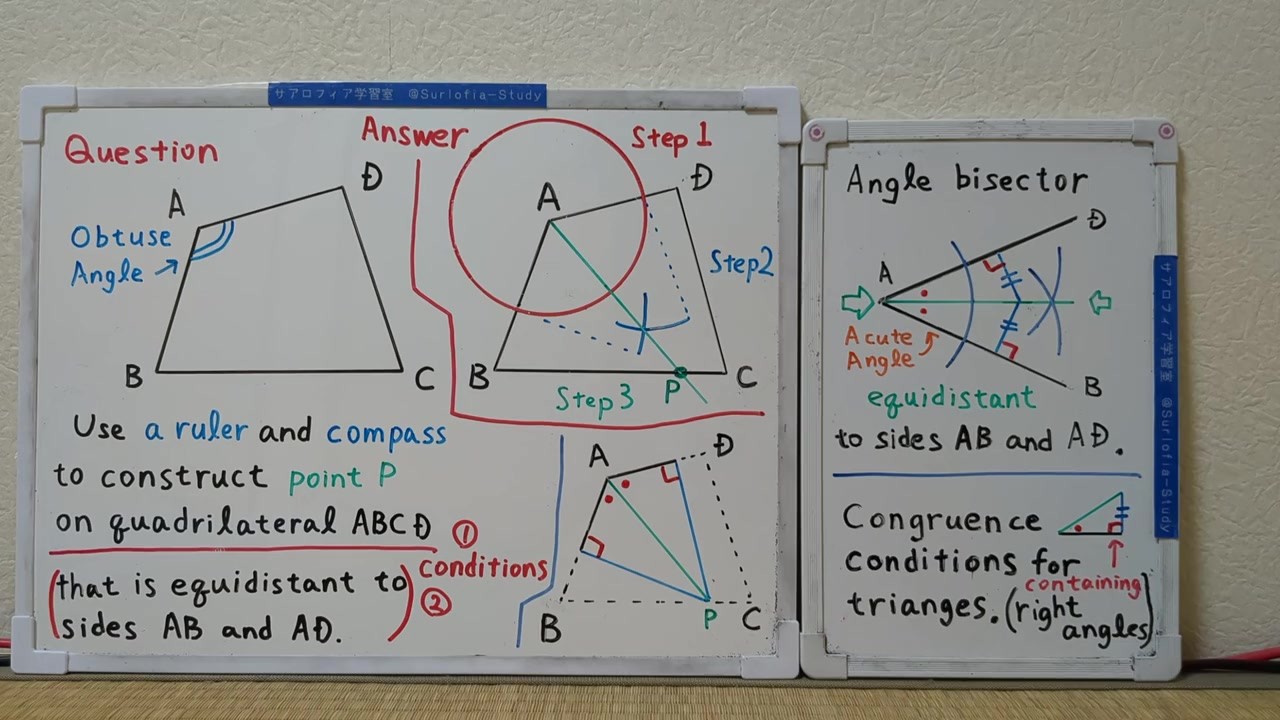 サアロフィア学習室 @Surlofia-Study
Question
A
D
Obtuse
Angle
B
C
Use a ruler and compass
to construct point P
on quadrilateral ABCD ①
conditions
(that is equidistant to ②
sides AB and AD.)
Answer
Step 1
A
D
Step2
B
Step 3
P
C
A
D
B
P
C
Angle bisector
D
A
Acute
Angle
B
equidistant
to sides AB and AD.
Congruence
conditions for
containing
trianges. (right
angles)
サアロフィア学習室 @Surlofia-Study